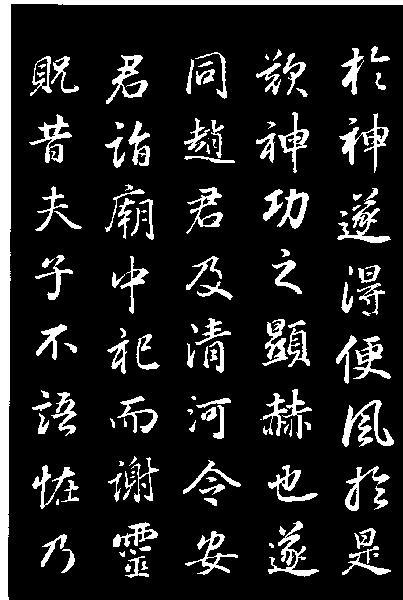 於神遂得便風於是
歎神功之顯赫也遂
同趙君及清河令安
君詣廟中祀而謝靈
貺昔夫子不語恠乃